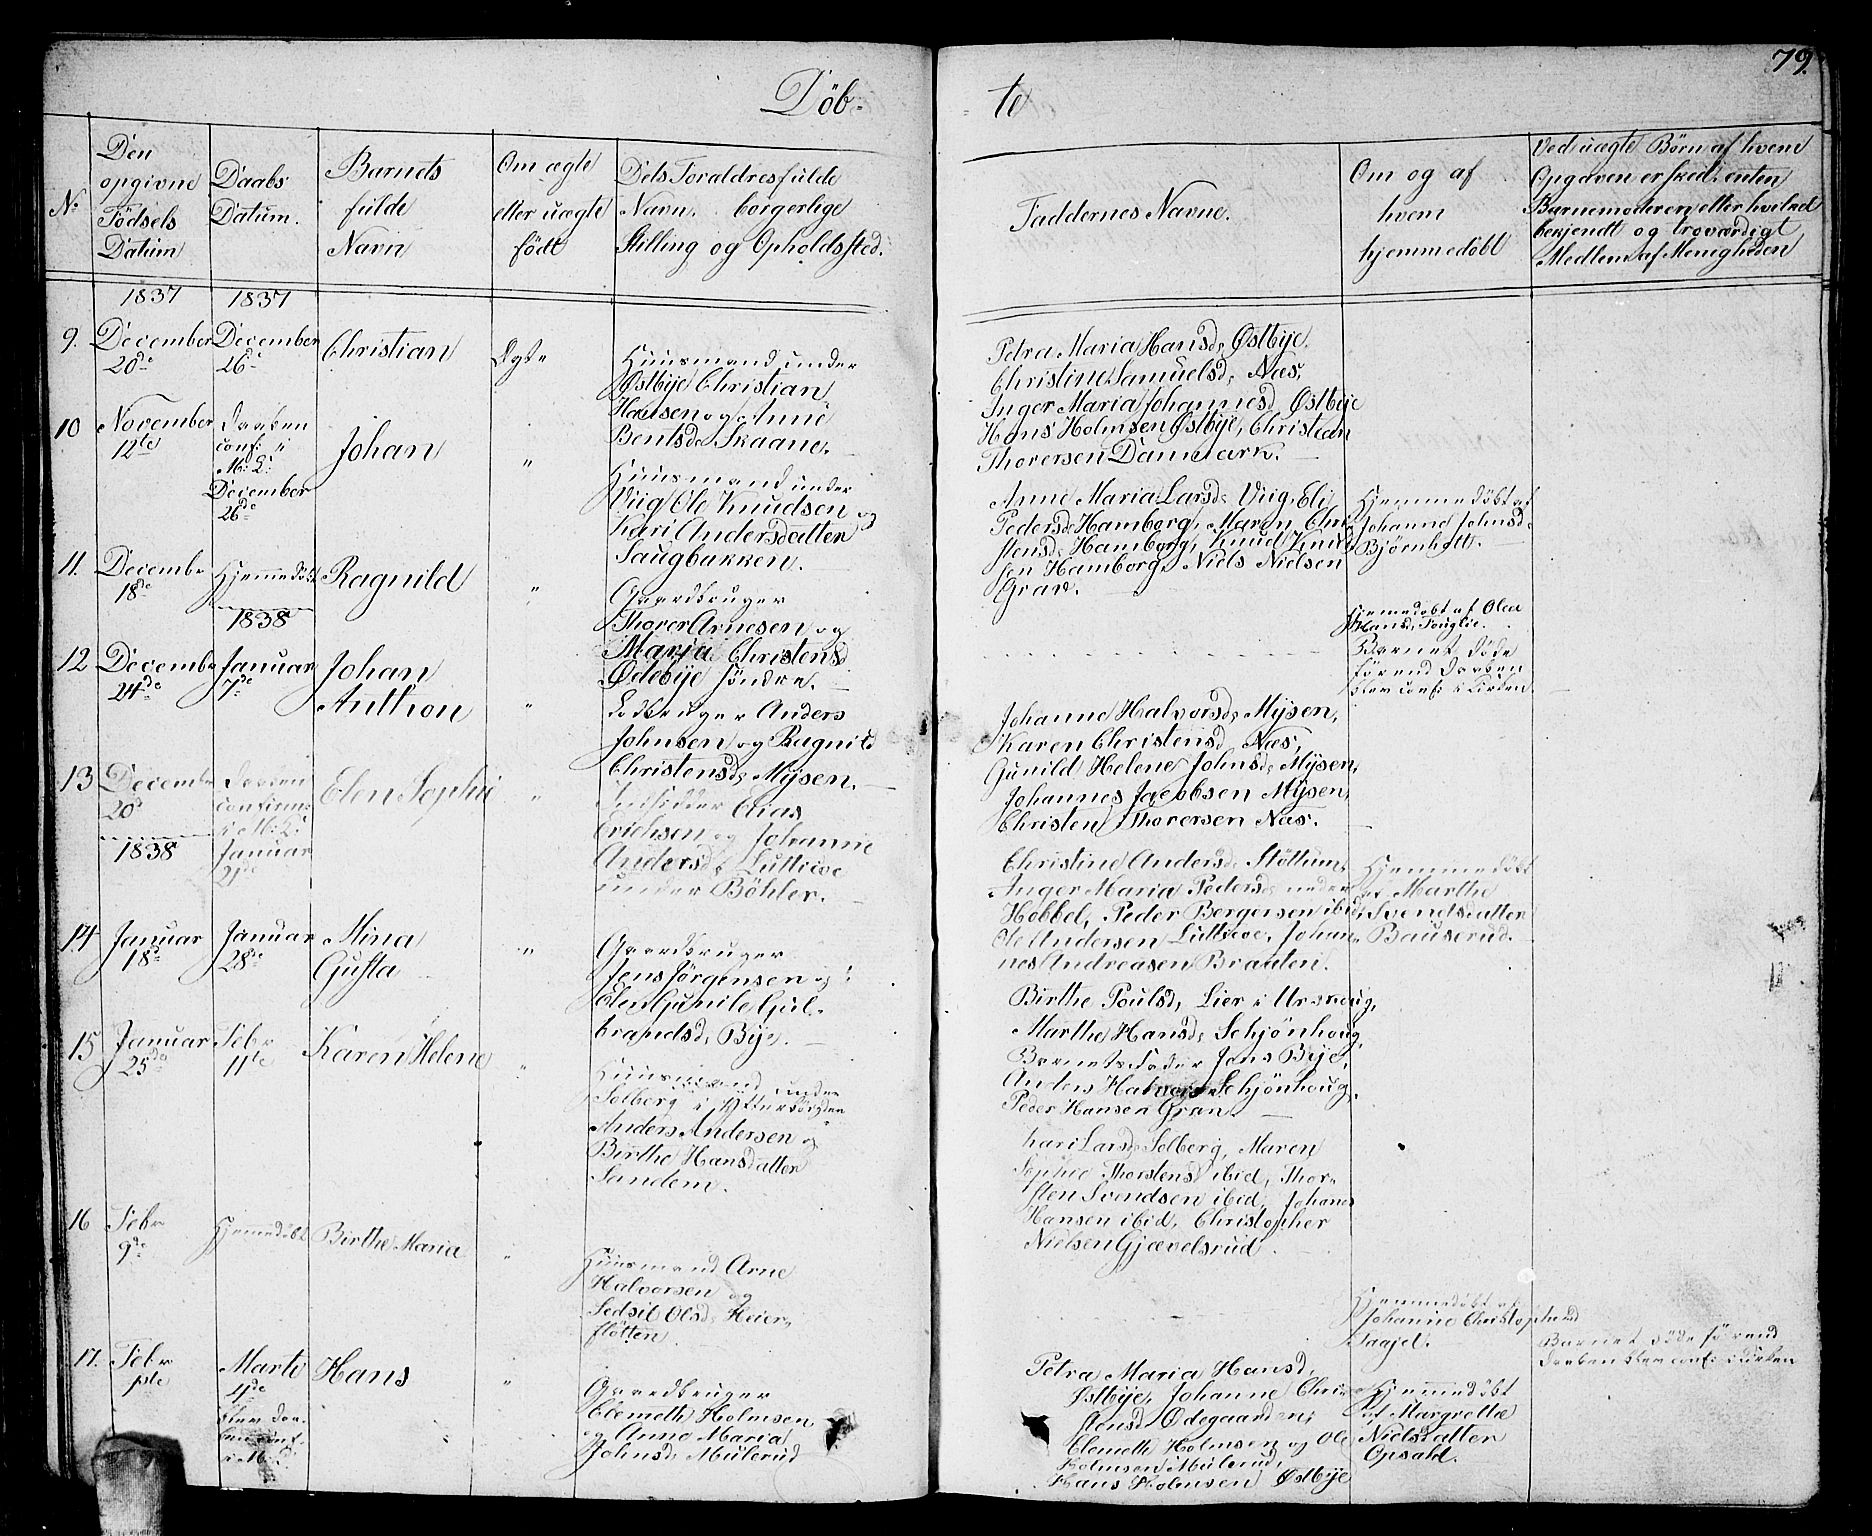 79.
Döb-
te
No
Den
opgivne
Födsels
Datum
Daabs
Datum.
Barnets
fulde
Navn
Om ægte
eller uægte
födt
Dets Forældres fulde
Navn, borgerlige
Stilling og Opholdssted.
Faddernes Navne.
Om og af
hvem
hjemmedöbt
Ved uægte Börn af hvem
Opgaven er sked, enten
Barnemoderen eller hvilket
bekjendt og troværdigt
Medlem af Menigheden
1837
1837
9.
December
20de
December
26de
Christian
Ægte
Huusmand under
Östbye Christian
Hansen og Anne
Bentsd. Skaane.
Petra Maria Hansd. Östbye,
Christine Samuelsd. Næs,
Inger Maria Johannesd. Östbye
Hans Holmsen Östbye, Christian
Thorersen Danmark.
10
November
12te
Daaben
conf: i
M: K:
December
26de
Johan
"
Huusmand under
Viig Ole Knudsen og
Kari Andersdatter
Saugbakken.
Anne Maria Larsd. Viig, Eli
Pedersd. Hamborg, Maren Chri-
stensd. Hamborg, Knud Knud-
sen Hamborg, Niels Nielsen
Grav.
Hjemmedöbt af
Johanne Johnsd.
Björnholt.
11.
Decembr
18de
Hjemmedöbt
Ragnild
"
Gaardbruger
Thorer Arnesen og
Maria Christensd
Ödebye söndre.
Hjemmedöbt af Olea
Hansd.
Barnet döde
förend Daaben
blev conf: i Kirken.
1838
12
Decembr
24de
Januar
7de
Johan
Anthon
"
Lodbruger Anders
Johnsen og Ragnild
Christensd. Mysen.
Johanne Halvorsd. Mysen,
Karen Christensd. Næs,
Gunild Helene Johnsd. Mysen,
Johannes Jacobsen Mysen,
Christen Thorersen Næs.
13
Decembr
20de
Daaben
confirm:
i M: K:
Januar
21de
Elen Sophie
"
Indsidder Elias
Erichsen og Johanne
Andersd.
under Böhler.
Christine Andersd. Slöttum,
Inger Maria Pedersd. nedre
Hobbel, Peder Bergersen ibid,
Ole Andersen Johan-
nes Andreasen Braaten.
Hjemmedöbt
af Marthe
Svendsdatter
Bauserud.
1838
14
Januar
18de
Januar
28de
Mina
Gusta
"
Gaardbruger
Jens Jörgensen og
Elen Gunile Gul-
brandsd. Bye.
Birthe Poulsd. Lier i Urskoug,
Marthe Hansd. Schjönhoug,
Barnets Fader Jens Bye,
Anders Halvors. Schjönhoug,
Peder Hansen Gran.
15
Januar
25de
Febr
11te
Karen Helene
"
Huusmand under
Solberg i Yttersöigden
Anders Andersen og
Birthe Hansdatter
Sandem.
Kari Larsd. Solberg, Maren
Sophie Thorstens. ibid, Thor-
sten Svendsen ibid, Johanes
Hansen ibid, Christopher
Nielsen Gjævelsrud.
16
Febr
9de
Hjemmedöbt
Birthe Maria
"
Huusmand Arne
Halvorsen og
Sedsil Olsd. Heier-
slötten.
Hjemmedöbt af
Johanne Christophersd
Daajel.
Barnet döde förend
Daaben blev conf: i Kirken
17.
Febr
1ste
Marts
4de
blev Daa-
ben conf.
i M: K:
Hans
"
Gaardbruger
Clemeth Holmsen
og Anne Maria
Johnsd. Mülerud
Petra Maria Hansd.
Östbye, Johanne Chri-
stensd. Ödegaarden,
Clemeth Holmsen og Ole
Holmsen Mülerud,
Hans Holmsen Östbye
Hjemmedöbt
af Margrethe
Nielsdatter
Opsahl.